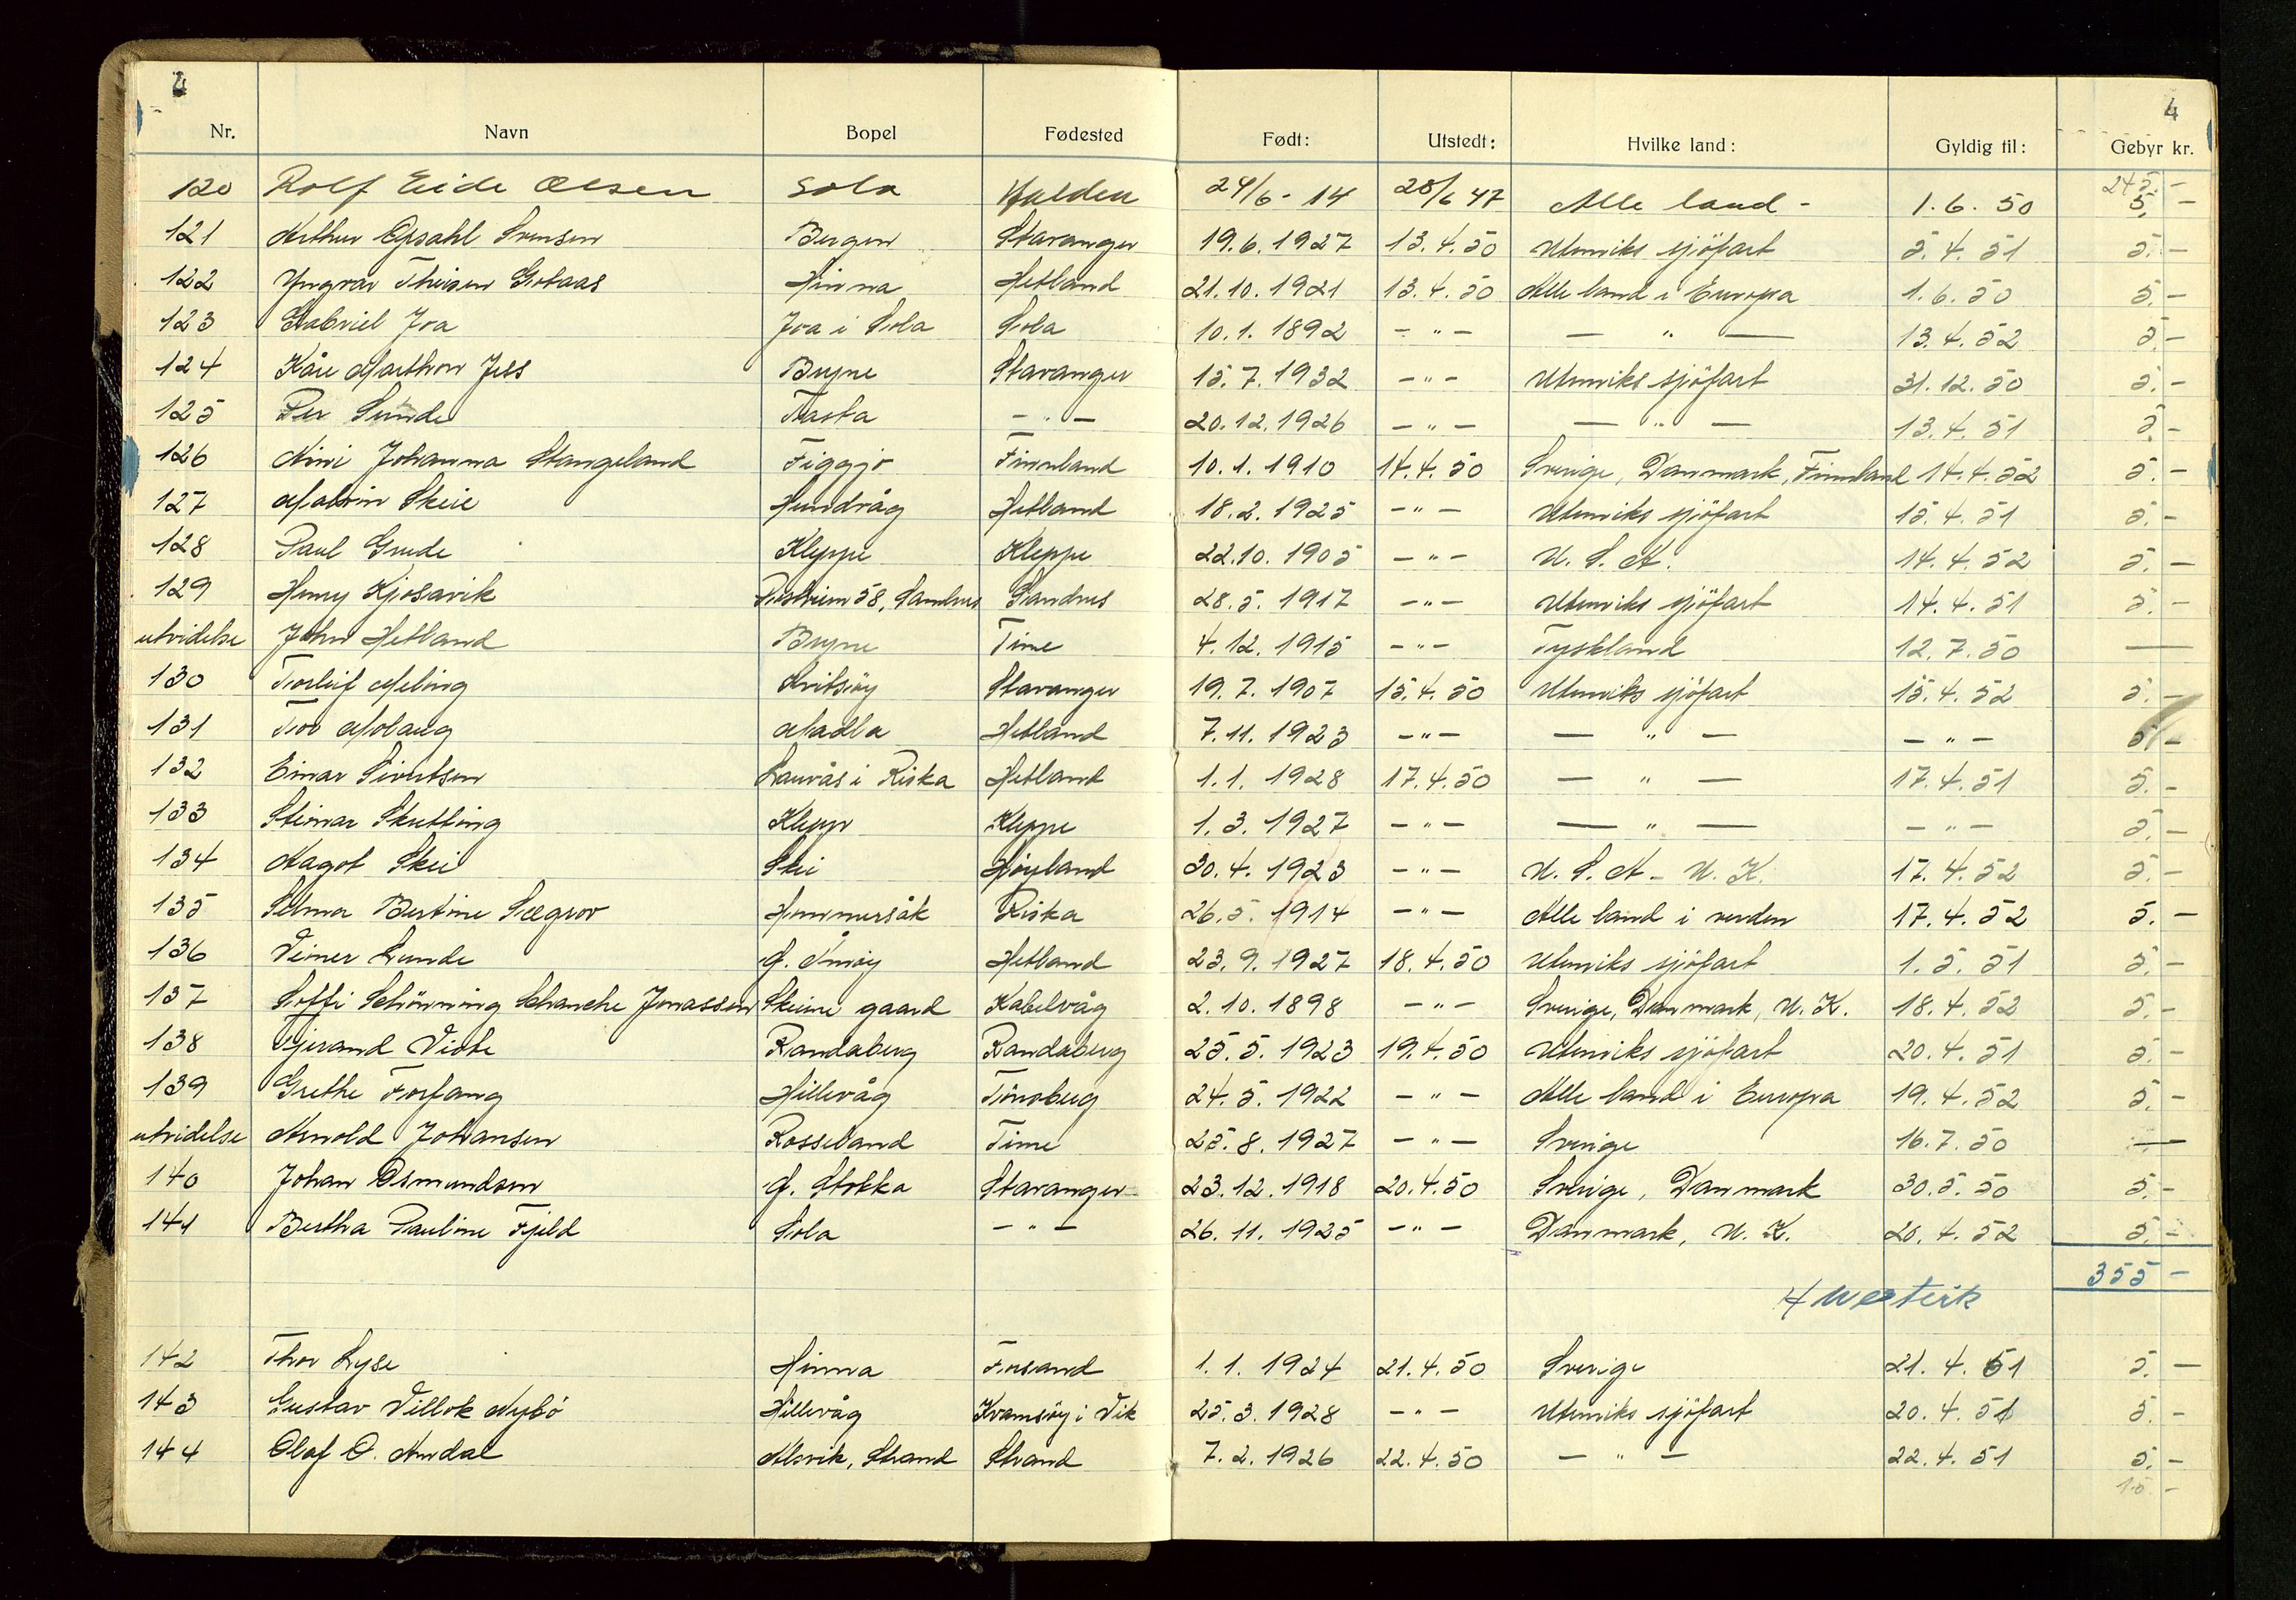 4 4
Nr. Navn Bopel Fødested Født: Utstedt: Hvilke land: Gyldig til: Gebyr kr.
245.-
120 Rolf Eide Olsen Sola Halden 24/6-14 28/6 47 Alle land - 1.6.50 5.-
121 Arthur Opsahl Svensen Bergen Stavanger 19.6.1927 13.4.50 Utenriks sjöfart 5.4.51 5.-
122 Yngvar Theisen Gotaas Hinna Hetland 21.10.1921 13.4.50 Alle land i Europa 1.6.50 5.-
123 Gabriel Joa Joa i Sola Sola 10.1.1892 - " - - " - 13.4.52 5.-
124 Kåre Marthon Jess Bryne Stavanger 15.7.1932 - " - Utenriks sjöfart 31.12.50 5.-
125 Per Sunde Tasta - " - 20.12.1926 - " - - " - 13.4.51 5.-
126 Aini Johanna Stangeland Figgjo Finnland 10.1.1910 14.4.50 Sverige, Danmark, Finnland 14.4.52 5.-
127 Malvin Skeie Hundvåg Hetland 18.2.1925 - " - Utenriks sjöfart 15.4.51 5.-
128 Paul Grude Kleppe Kleppe 22.10.1905 - " - U.S.A. 14.4.52 5.-
129 Henry Kjosavik 58, Sandnes Sandnes 28.5.1917 - " - Utenriks sjöfart 14.4.51 5.-
utvidelse John Hetland Bryne Time 4.12.1915 - " - Tyskland 12.7.50 —
130 Torleif Meling Kvitsöy Stavanger 19.7.1907 15.4.50 Utenriks sjöfart 15.4.52 5.-
131 Tor Molaug Madla Hetland 7.11.1923 - " - - " - - " - 5.-
132 Einar Sivertsen Lauvås i Riska Hetland 1.1.1928 17.4.50 - " - 17.4.51 5.-
133 Steinar Skretting Klepp Kleppe 1.3.1927 - " - - " - - " - 5.-
134 Aagot Skei Skei Höyland 30.4.1923 - " - U.S.A. - U.K. 17.4.52 5.-
135 Selma Bertine Sægrov Hommersåk Riska 26.5.1914 - " - Alle land i verden 17.4.52 5.-
136 Veiner Lunde G. Åmöy Hetland 23.9.1927 18.4.50 Utenriks sjöfart 1.5.51 5.-
137 Soffi Schönning Schanche Jonassen Skeine gaard Kabelvåg 2.10.1898 - " - Sverige, Danmark, U.K. 18.4.52 5.-
138 Tjerand Viste Randaberg Randaberg 25.5.1923 19.4.50 Utenriks sjöfart 20.4.51 5.-
139 Grethe Forfang Hillevåg Tönsberg 24.5.1922 - " - Alle land i Europa 19.4.52 5.-
utvidelse Arnold Johansen Rosseland Time 25.8.1927 - " - Sverige 16.7.50 —
140 Johan Osmundsen G. Stokka Stavanger 23.12.1918 20.4.50 Sverige, Danmark 30.5.50 5.-
141 Bertha Pauline Fjeld Sola - " - 26.11.1925 - " - Danmark, U.K. 20.4.52 5.-
355 -
142 Thor Lyse Hinna Forsand 1.1.1924 21.4.50 Sverige 21.4.51 5.-
143 Gustav Villok Nybö Hillevåg Kvamsöy i Vik 25.3.1928 - " - Utenriks sjöfart 20.4.51 5.-
144 Olaf O. Amdal Alsvik, Strand Strand 7.2.1926 22.4.50 - " - 22.4.51 5.-
15.-